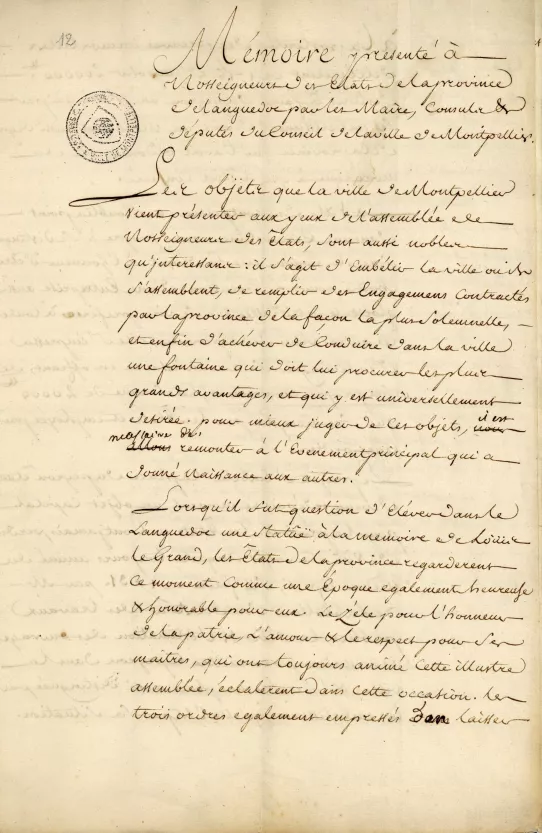 12
Mémoire présenté à
Nosseigneurs des Etats de la province
de languedoc par les Maire, Consuls &
députés du Conseil de la ville de Montpellier.
Les objets que la ville de Montpellier
vient présenter aux yeux de l'assemblée de
Nosseigneurs des Etats, sont aussi nobles
qu'interessans : il s'agit d'Embélir la ville où ils
s'assemblent, de remplir des Engagemens Contractés
par la province de la façon la plus Solemnelles,
et enfin d'achever de Conduire dans la ville
une fontaine qui doit lui procurer les plus
grands avantages, et qui y est universellement
desirée. pour mieux juger de Ces objets, il est
necessaire de remonter à l'Evenement principal qui a
donné Naissance aux autres.
Lorsqu'il fut question d'Elever dans le
Languedoc une Statüe à la memoire de Loüis
le Grand, les Etats de la province regarderent
Ce moment Comme une Epoque egalement heureuse
& honorable pour eux. Le Zéle pour l'honneur
de la patrie, L'amour & le respect pour Ses
maitres, qui ont toujours animé Cette illustre
assemblée, éclaterent dans Cette occasion. les
trois ordres egalement empressés laisser